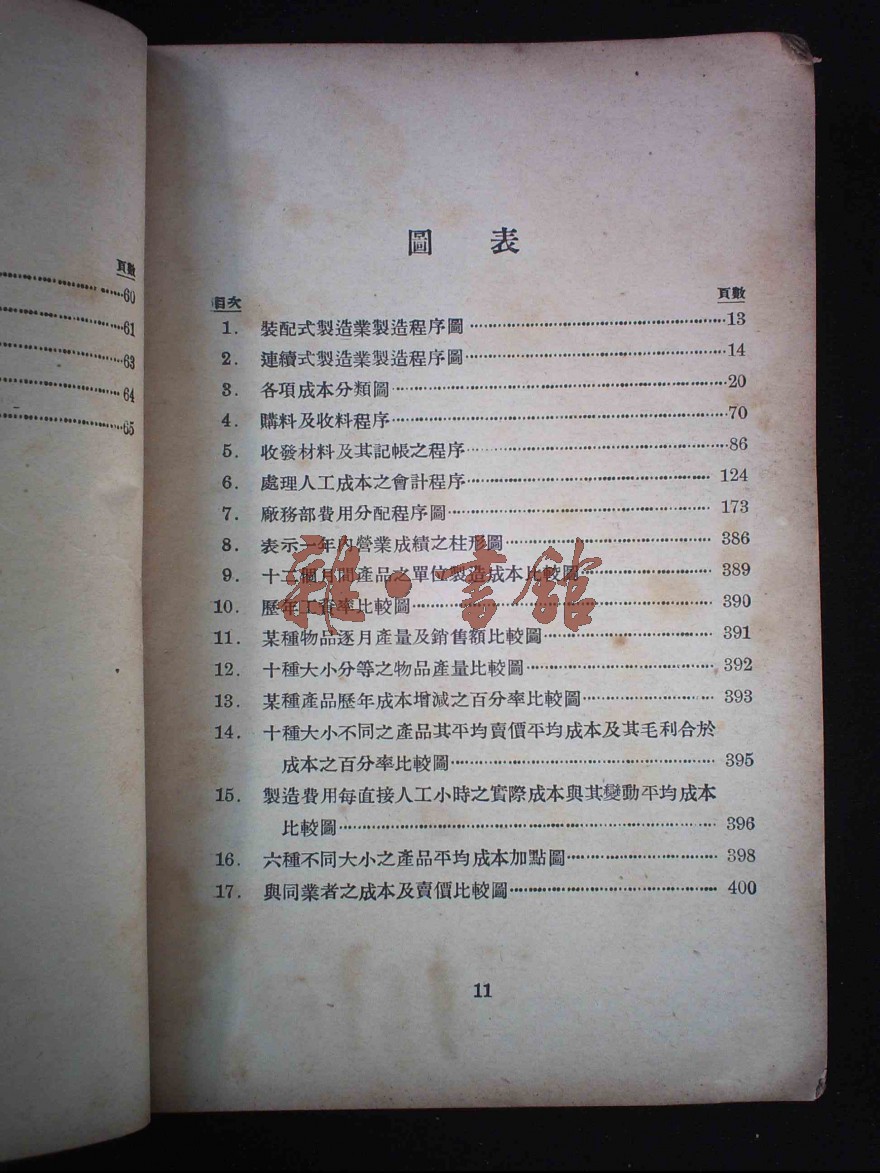 頁數
……60
……61
……63
……64
……65
圖 表
目次 頁數
1. 裝配式製造業製造程序圖……13
2. 連續式製造業製造程序圖……14
3. 各項成本分類圖……20
4. 購料及收料程序……70
5. 收發材料及其記帳之程序……86
6. 處理人工成本之會計程序……124
7. 廠務部費用分配程序圖……173
8. 表示一年內營業成績之柱形圖……386
9. 十二個月間產品之單位製造成本比較圖……389
10. 歷年工資率比較圖……390
11. 某種物品逐月產量及銷售額比較圖……391
12. 十種大小分等之物品產量比較圖……392
13. 某種產品歷年成本增減之百分率比較圖……393
14. 十種大小不同之產品其平均賣價平均成本及其毛利合於
成本之百分率比較圖……395
15. 製造費用每直接人工小時之實際成本與其變動平均成本
比較圖……396
16. 六種不同大小之產品平均成本加點圖……398
17. 與同業者之成本及賣價比較圖……400
雜·書館
11